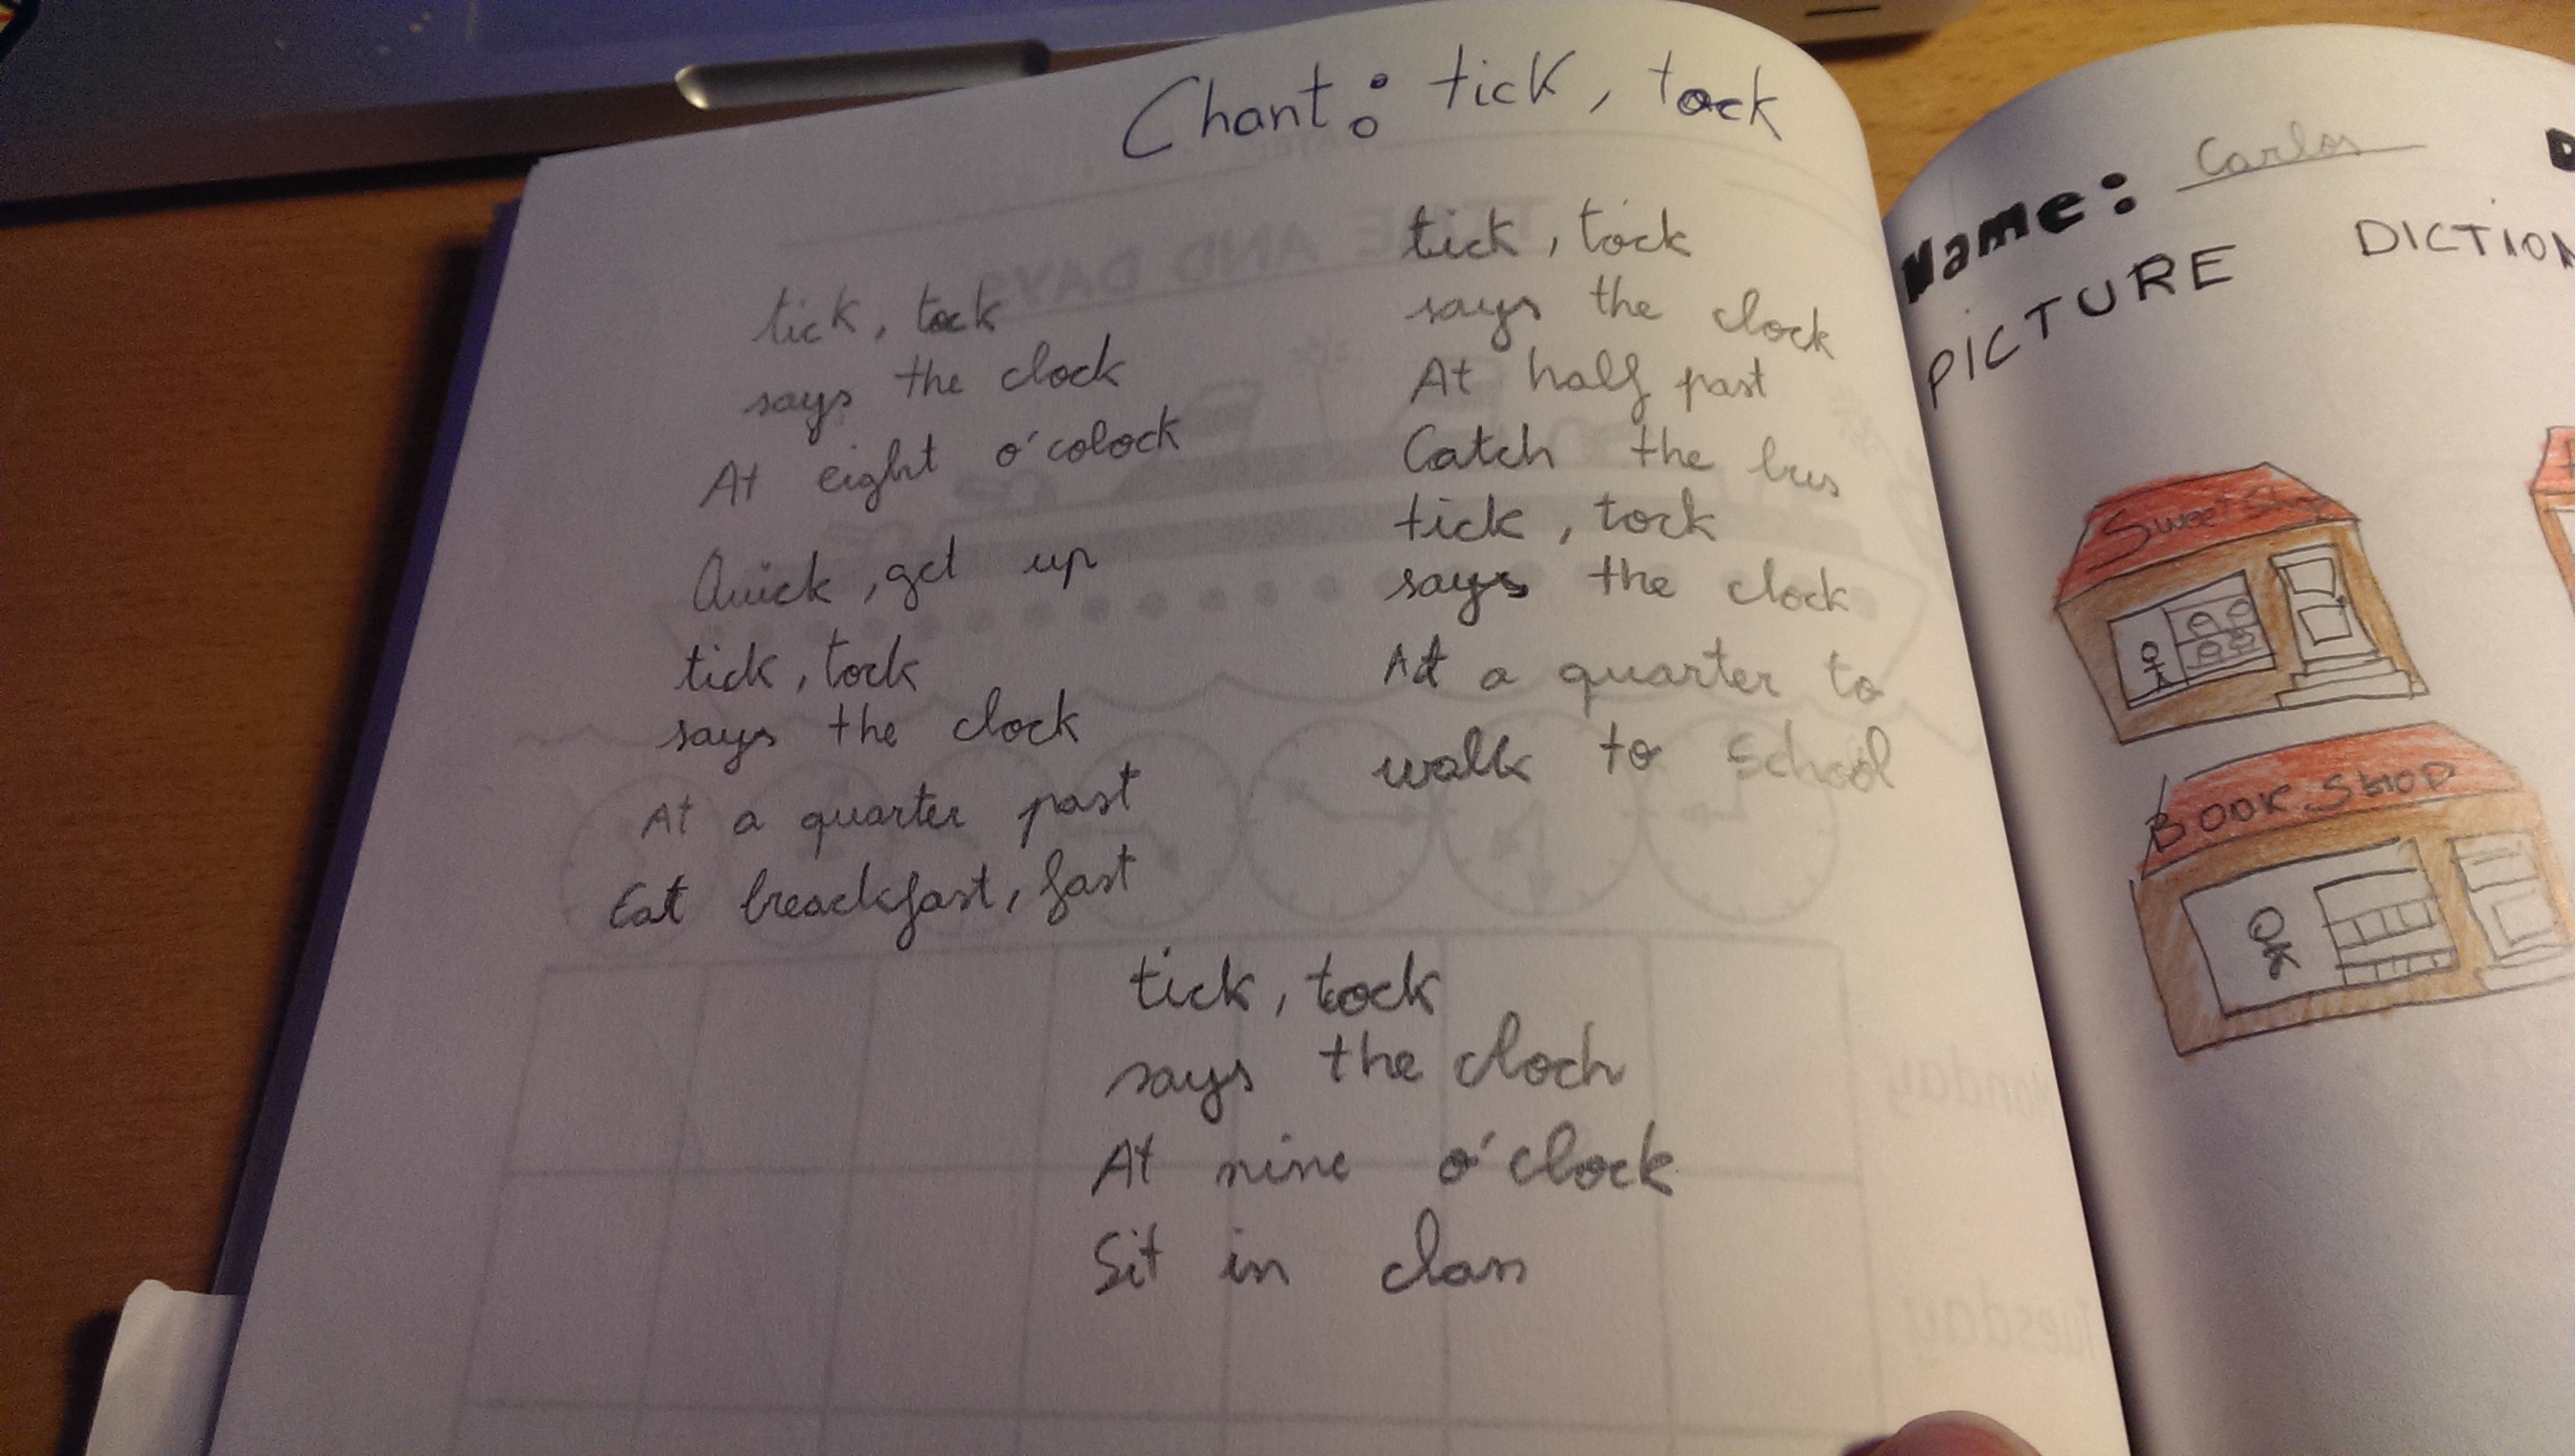 Chant: tick, tock
tick, tock
says the clock
At eight o'colock
Quick, get up
tick, tock
says the clock
At a quarter past
Eat breackfast, fast
tick, tock
says the clock
At half past
Catch the bus
tick, tock
says the clock
At a quarter to
walk to school
tick, tock
says the cloch
At nine o'clock
Sit in class
Name: Carlos
PICTURE DICTION
Sweet Shop
BOOK SHOP